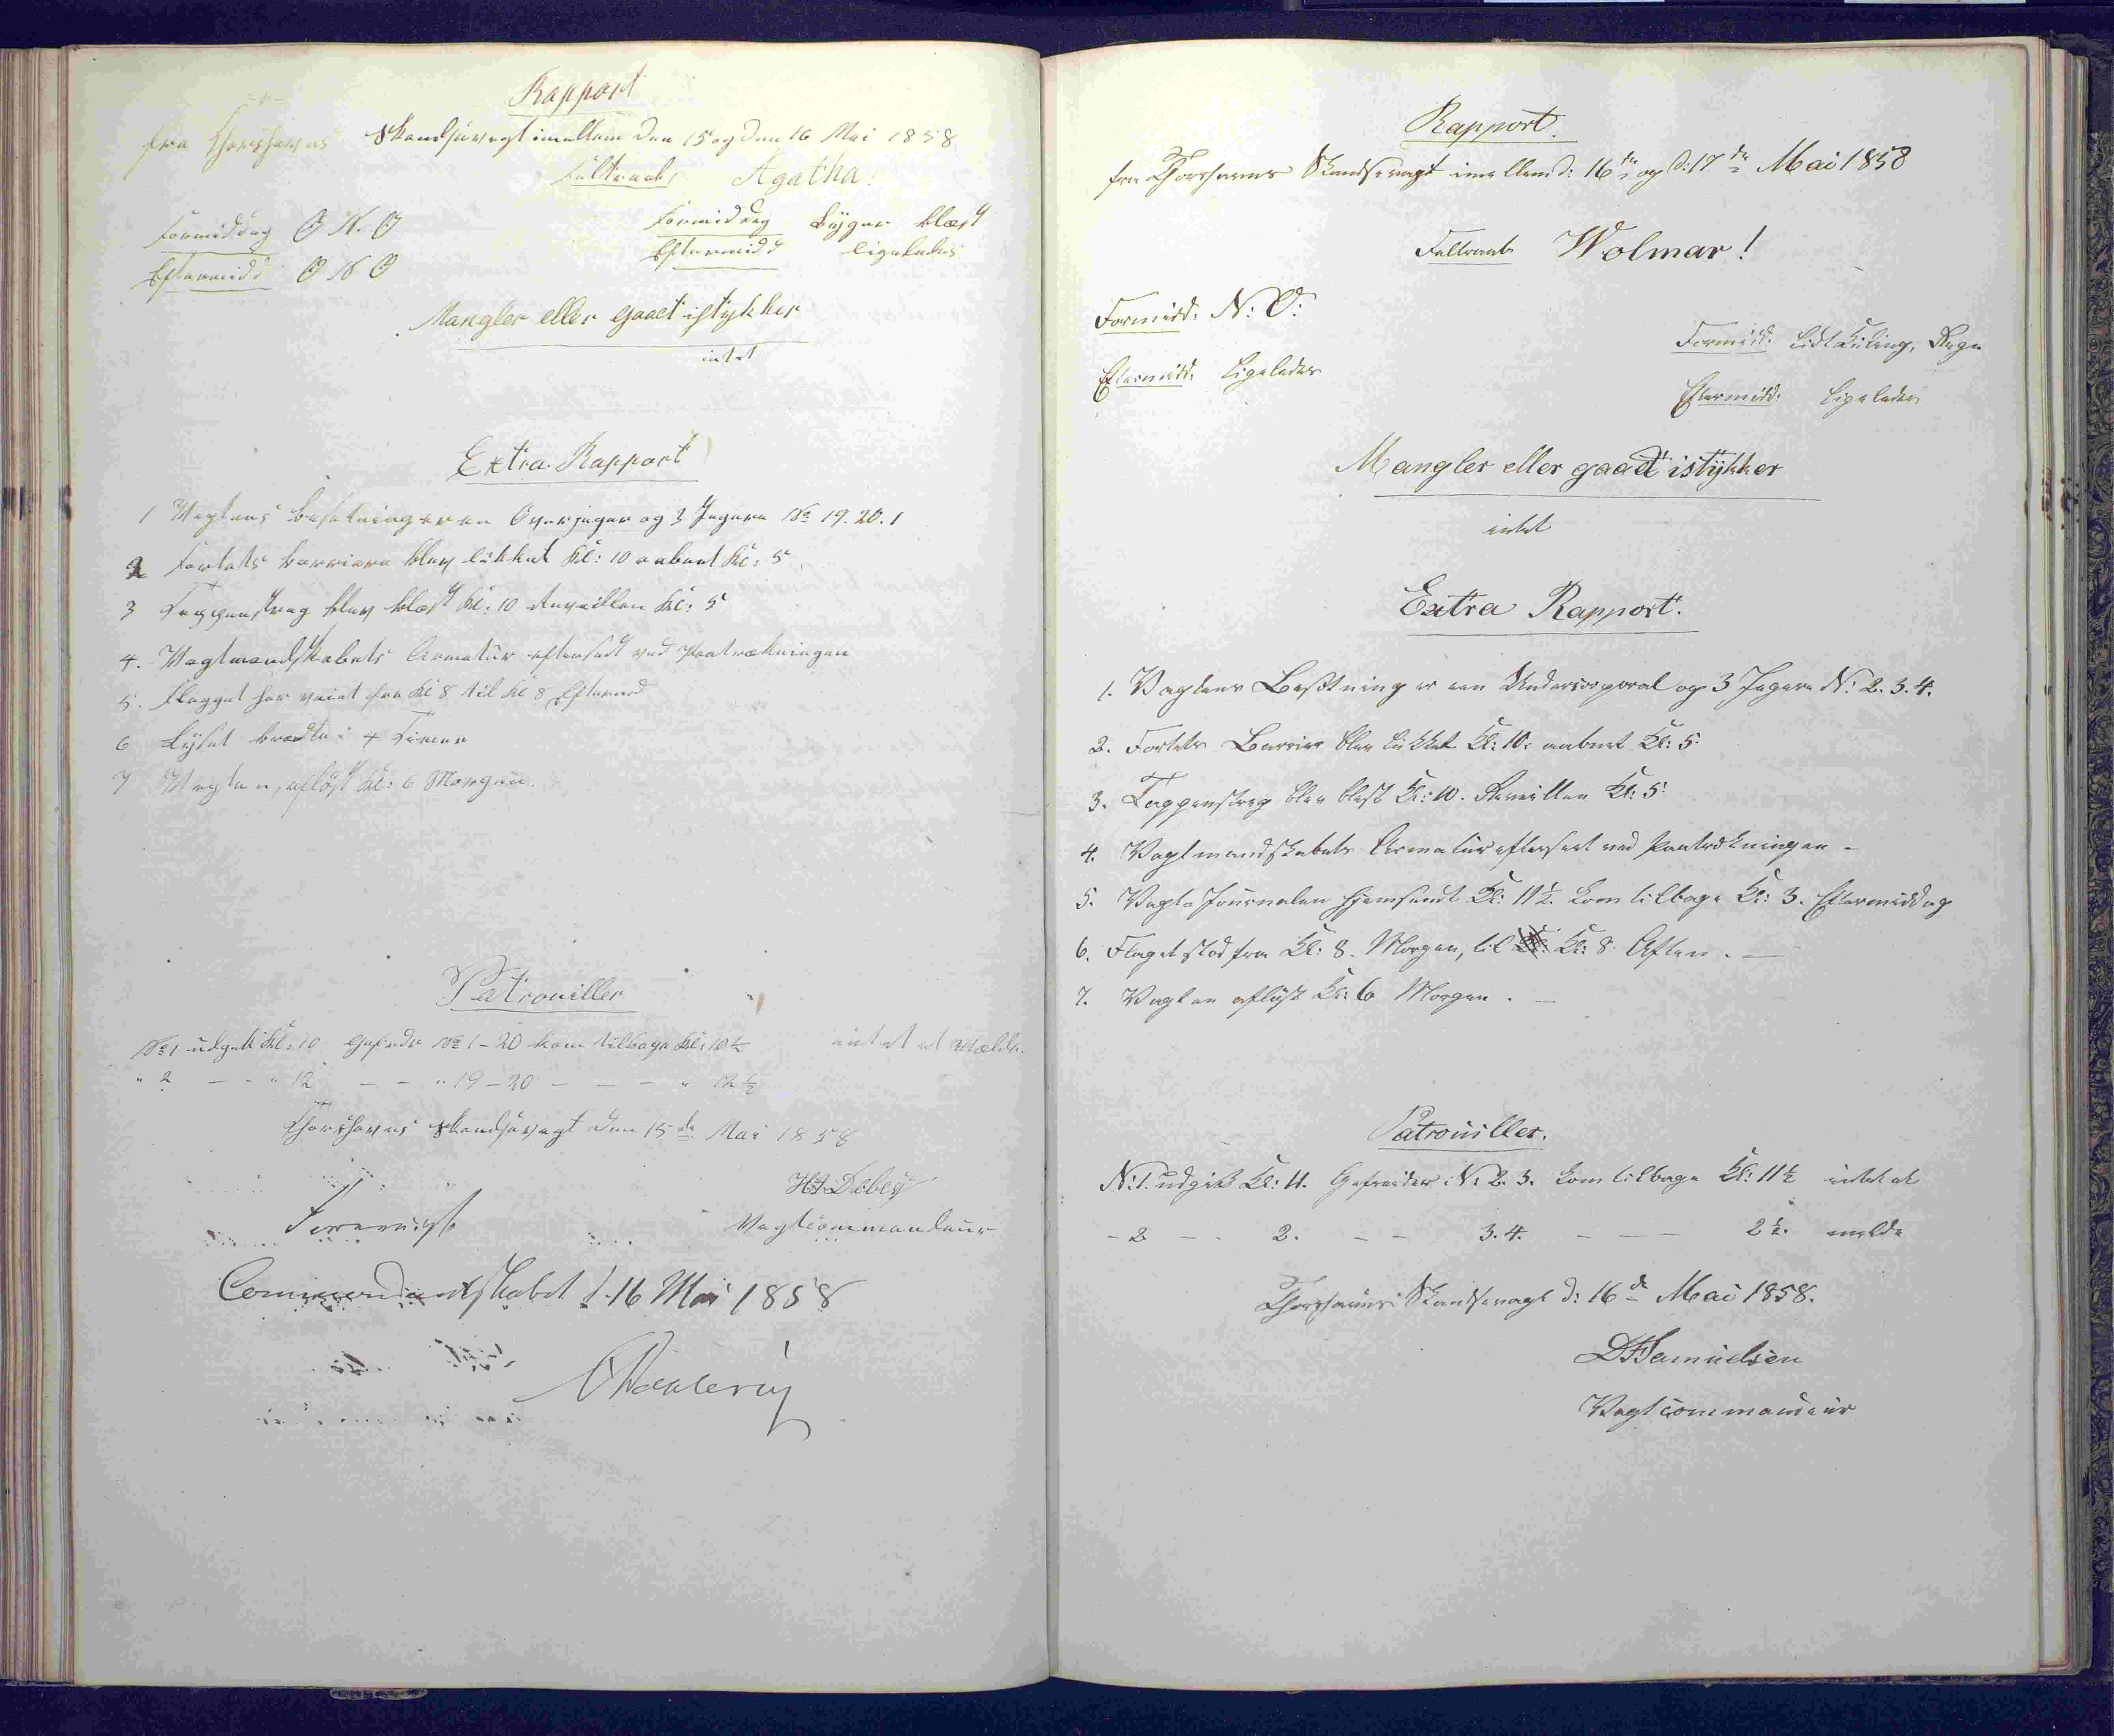 Rapport
fra Thorshavns Skandsevagt imellem den 15 og den 16 Mai 1858
Feltraab, Agatha.
Formiddag O N. O Formiddag Byger blæst
Eftermidd O N O Eftermidd ligeledes
Mangler eller gaaet istykker
intet
Extra Rapport
1 Vagtens besetning er en Overjæger og 3 Jegere No 19. 20. 1
2 Fortets barriere blev lukket Kl: 10 aabent Kl: 5
3 Tappenstreg blev blæst Kl: 10 Reveillen Kl: 5
4. Vagtmandskabets Armatur efterset ved Paatrækningen
5. Flagget har veiet fra Kl 8 til Kl 8 Eftermd
6 Lyset brændte i 4 Timer
7 Vagten afløst Kl: 6 Morgen.
Patrouiller
No 1 udgik Kl: 10 Gefreider No 1-20 kom tilbage Kl: 10½ intet at melde
" 2 - - " 12 - - " 19-20 - - - " 12½
Thorshavns Skandsevagt den 15de Mai 1858
HJ Debes
Foreviist Vagtcommandeur
Commandantskabet d. 16 Mai 1858
Rapport.
fra Thorshavns Skandsevagt imellem d: 16de og d: 17de Mai 1858
Feltraab Wolmar!
Formidd. N: O:
Formidd. lidt Kuling, Regn
Eftermidd. Ligeledes
Eftermidd. Ligeledes
Mangler eller gaaet istykker
intet
Extra Rapport.
1. Vagtens Besetning er een Undercorporal og 3 Jegere N: 2. 3. 4.
2. Fortets Barrier blev lukket Kl: 10. aabnet Kl: 5.
3. Tappenstreg blev blest Kl: 10. Reveillen Kl: 5.
4. Vagtmandskabets Armatur efterseet ved Paatrekningen -
5. Vagt-Journalen hjemsendt Kl: 11½ kom tilbage Kl: 3. Eftermiddag
6. Flaget stod fra Kl: 8. Morgen, til Kl: 8. Aften. -
7. Vagten afløst Kl: 6 Morgen. -
Patrouiller.
N: 1. udgik Kl: 11. Gefreider N: 2. 3. kom tilbage Kl: 11½ intet at
- 2 - - 2. - - 3. 4. - - - 2½. melde
Thorshavns Skandsevagt d: 16de Mai 1858.
DSamuelsen
Vagtcommandeur